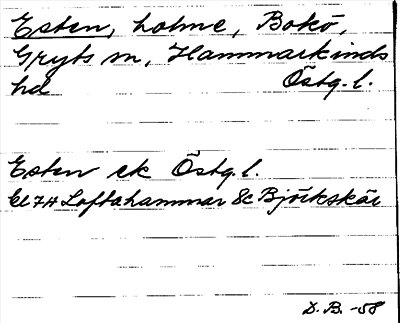 Esten, holme, Bokö,
Gryts sn, Hammarkinds
hd Östg. l.
Esten ek Östg. l.
Bl 7H Loftahammar 8c Björkskär
D. B. -58